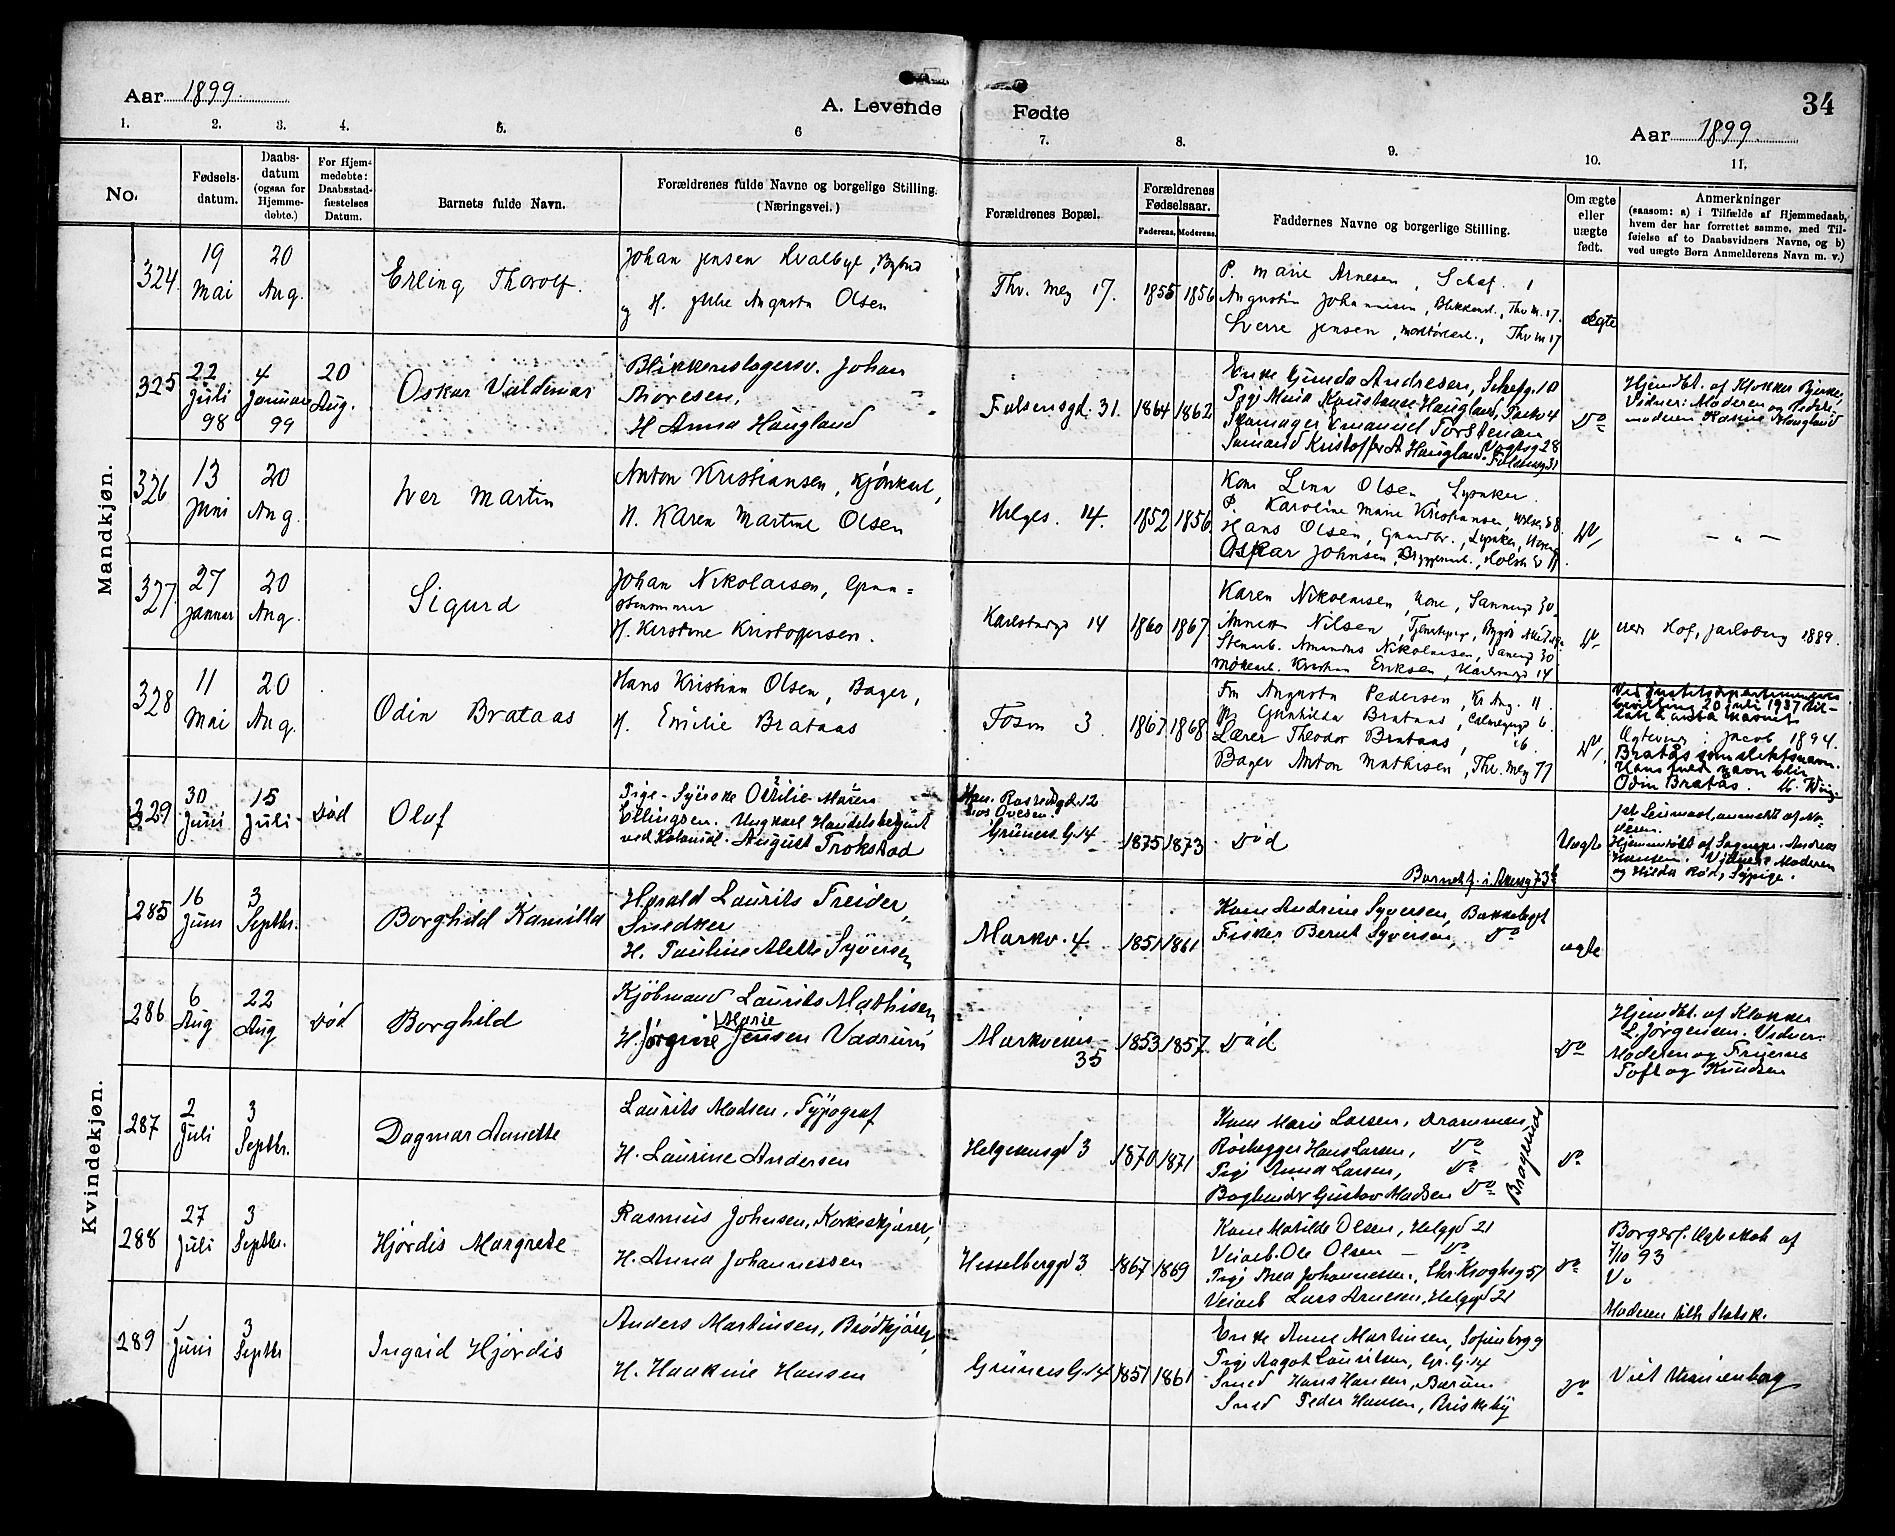 Aar 1899.
A. Levende Fødte
34
Aar 1899.
1. 2. 3. 4. 5. 6 7. 8. 9. 10. 11.
No.
Fødsels-
datum.
Daabs-
datum
(ogsaa for
Hjemme-
døbte.)
For Hjem-
medøbte:
Daabsstad-
fæstelses
Datum.
Barnets fulde Navn.
Forældrenes fulde Navne og borgelige Stilling.
(Næringsvei.)
Forældrenes Bopæl.
Forældrenes
Fødselsaar.
Faderens. Moderens.
Faddernes Navne og borgerlige Stilling.
Om ægte
eller
uægte
født.
Anmerkninger
(saasom: a) i Tilfælde af Hjemmedaab,
hvem der har forrettet samme, med Til-
føielse af to Daabsvidners Navne, og b)
ved uægte Børn Anmelderens Navn m. v.)
Mandkjøn.
324.
19
Mai
20
Aug.
Erling Thorolf.
Johan Jensen Kvalbye,
og H. Augusta Olsen
Thv. Mey 17.
1855 1856
P. Marie Arnesen,
Augustin Johannesen, Thv m. 17.
Sverre Jensen, Thv m 17
ægte
325
22
Juli
98
4
Januar
99
20
Aug.
Oskar Valdemar
Blikkenslagersv. Johan
Thoresen,
H Anna Haugland
Falsensgd. 31.
1864 1862
Enke Gunda Andresen, 10
Pige Maria Konstanse Haugland,
Skomager Emanuel Torstensen
Sømand Kristoffer A Haugland
Do
Hjemdbt. af Klokker
Vidner: Moderen og
moderen Haugland
326
13
Juni
20
Aug.
Iver Martin
Anton Kristiansen, Kjørekarl,
H. Karen Martine Olsen
Helges. 14.
1852 1856.
Kone Lina Olsen, Lysaker.
P. Karoline Marie Kristiansen,
Hans Olsen, Lysaker,
Oskar Johnsen,
Do
— „ —
327.
27
Januar
20
Aug.
Sigurd
Johan Nikolaisen, Grun-
H. Kirstine Kristofersen.
Karlstadgd 14
1860 1867
Karen Nikolaisen, Kone, 30.
Annette Nilsen,
Stenarb. Amandus Nikolaisen, 30
Kristian Eriksen, 14
Do
Hof, Jarlsberg 1889.
328
11
Mai
20
Aug.
Odin Brataas
Hans Kristian Olsen, Bager,
H. Emilie Brataas
Fosv 3
1867 1868
Fru Augusta Pedersen, 11.
Gunhilda Brataas, 6.
Lærer Theodor Brataas, 6.
Bager Anton Mathisen, Thv. Mey 77
Do
Ved justitsdepartementets
bevilling 20 juli 1937 til-
latt å anta navnet
Jacob 1894.
Bratås som slektsnavn.
Hans fulde navn blir
Odin Bratås.
329
30
Juni
15
Juli
Død
Olaf
Pige-Syerske Otilie Maren
Ellingsen. Ungkarl Handelsbetjent
ved Kolonial. August Trøkstad
12
hos Ovesen.
Grüners G. 4
1875 1873
Død
Barnet f. i Akersg 73
Uægte
1ste Leiermaal, anmeldt af Mo-
deren.
Hjemmedøbt af Andreas
Hansen. Vidner Moderen
og Hilda Rød, Sypige.
Kvindekjøn.
285
16
Juni
3
Septbr.
Borghild Kamilla
Harald Laurits Treider,
Snedker
H. Pauline Alette Syversen
Markv. 4
1851 1861
Kone Andrine Syversen, Bakkebygt
Fisker Bernt Syversen, Do
ægte
286
6
Aug
22
Aug
Død
Borghild
Kjøbmand Laurits Mathisen
H. Jørgine Marie Jensen Vadrum
Markveien
35
1853 1857
Død
Do
Hjemdbt. af Klokker
L. Jørgensen. Vidner:
Moderen og Fruerne
Toft og Knudsen
287
2
Juli
3
Septbr.
Dagmar Annette
Laurits Madsen, Typograf
H. Laurine Andersen
Helgesensgd 3
1870 1871
Kone Marie Larsen, Drammen,
Rørlægger Hans Larsen, Do
Pige Anna Larsen, Do
Bogbinder Gustav Madsen Do
Bragernes
Do
288
27
Juli
3
Septbr.
Hjørdis Margrete
Rasmus Johnsen, Korkeskjærer,
H. Anna Johannessen
Hesselberggd 3
1867 1869
Kone Matilde Olsen, Helggd 21
Veiarb. Ole Olsen — Do
Pige Thea Johannessen, Chr. Kroghsg 51
Veiarb Lars Arnesen, Helggd 21
Do
Borgerl. Ægteskab af
7/10 93
Do
Moderen tilh Statsk.
289
1
Juni
3
Septbr
Ingrid Hjørdis
Anders Martinsen, Brødkjører,
H. Haakine Hansen
Grüners G. 14
1851 1861
Enke Anne Martinsen, Sofienberg 9
Pige Aagot Lauritsen, Gr. G. 14
Smed Hans Hansen, Bærum
Smed Peder Hansen, Briskeby
Do
Viet Uranienborg